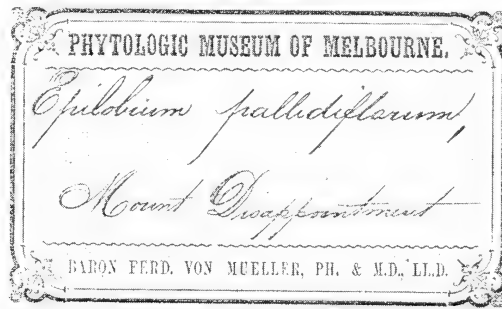 PHYTOLOGIC MUSEUM OF MELBOURNE.
Epilobium pallidiflorum,
Mount Disappointment
BARON FERD. VON MUELLER, PH. & M.D., LL.D.